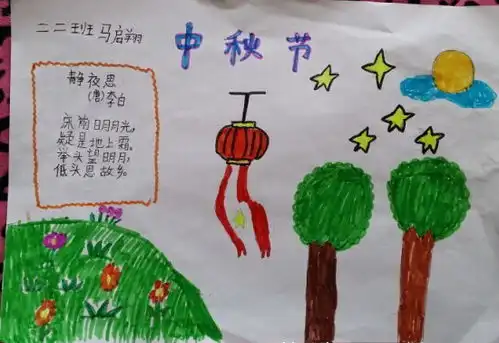 二二班 马启翔
中秋节
静夜思
(唐)李白
床前明月光，
疑是地上霜。
举头望明月，
低头思故乡。